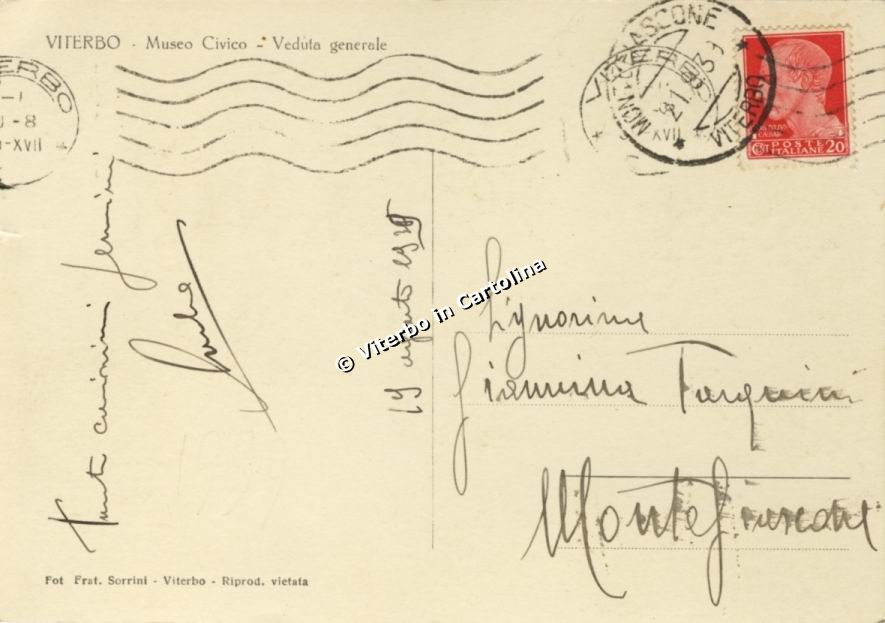 VITERBO - Museo Civico - Veduta generale
VITERBO
-8
XVII
MONTEFIASCONE
VITERBO
VITERBO
XVII
POSTE
ITALIANE 20
Tante
19 agosto 19
© Viterbo in Cartolina
Signorina
Giannina Tarquini
Montefiascone
Fot Frat. Sorrini - Viterbo - Riprod. vietata